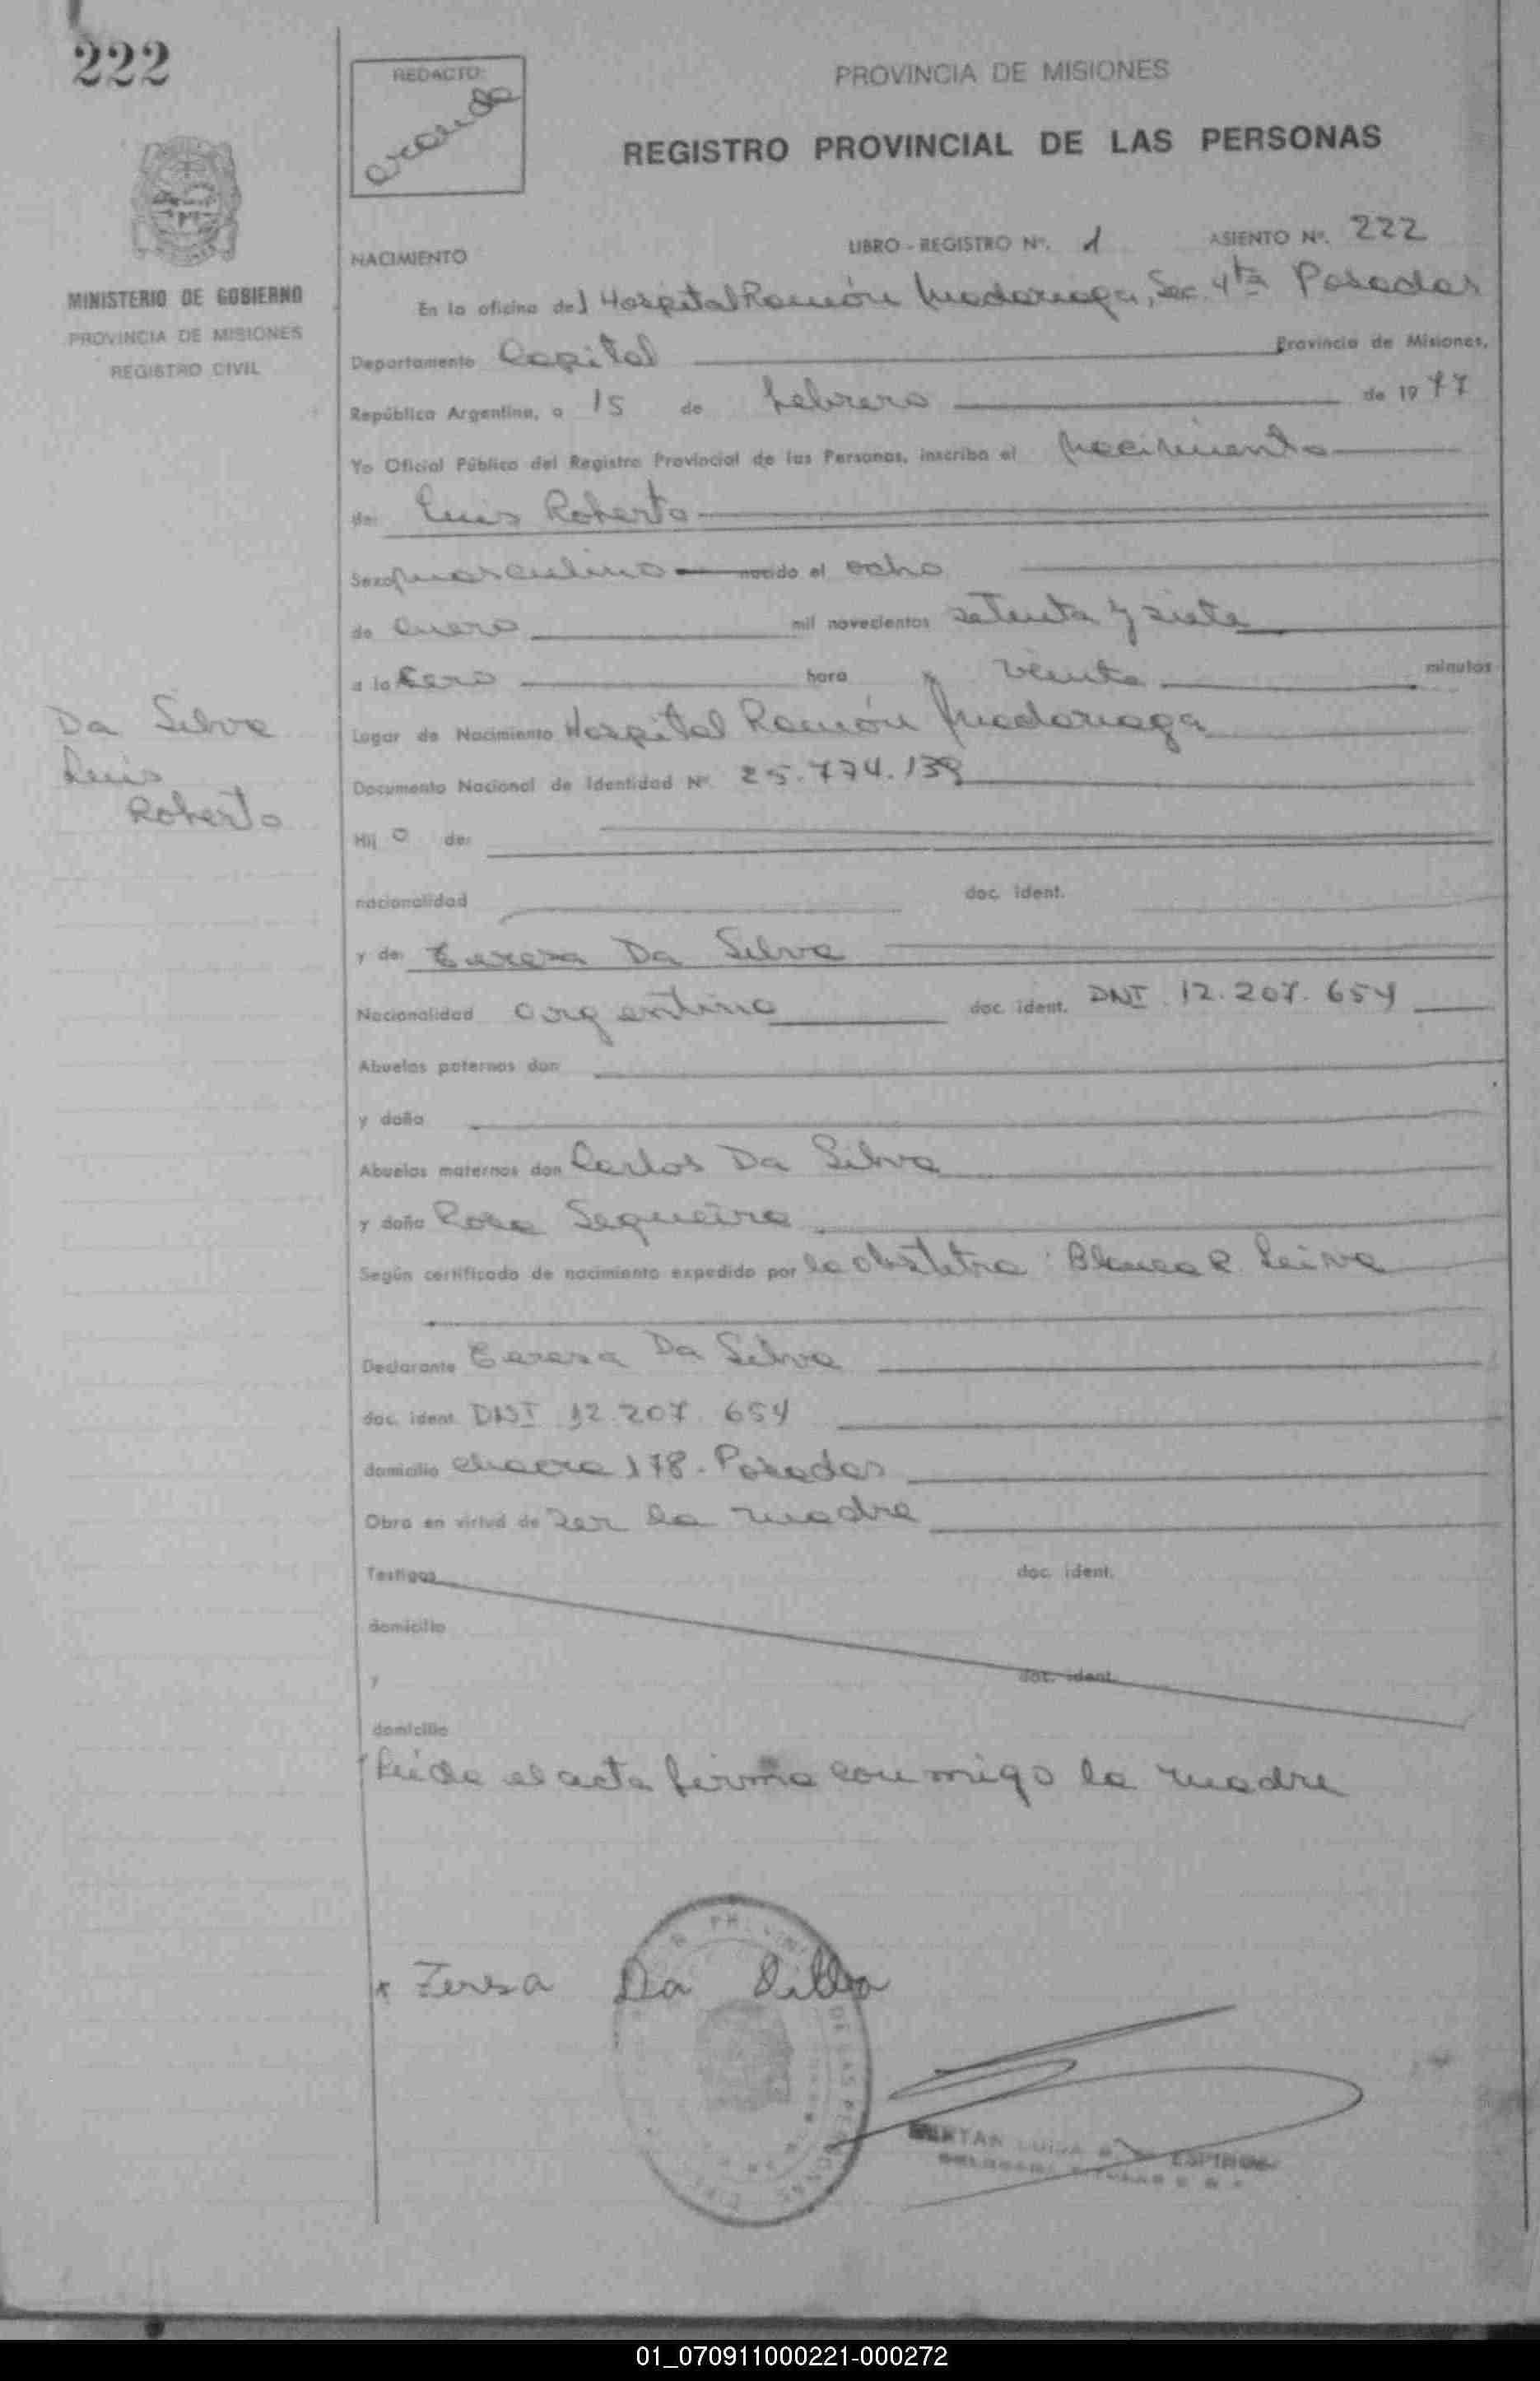 222
REDACTO:
PROVINCIA DE MISIONES
REGISTRO PROVINCIAL DE LAS PERSONAS
MINISTERIO DE GOBIERNO
PROVINCIA DE MISIONES
REGISTRO CIVIL
NACIMIENTO LIBRO - REGISTRO Nº. 1 ASIENTO Nº. 222
En la oficina del Hospital Ramón Madariaga, Sec. 4ta Posadas
Departamento Capital Provincia de Misiones,
República Argentina, a 15 de febrero de 1977
Yo Oficial Público del Registro Provincial de las Personas, inscribo el nacimiento
de: Luis Roberto
Sexo masculino nacido el ocho
de enero mil novecientos setenta y siete
a la cero hora y veinte minutos
Da Silva
Luis
Roberto
Lugar de Nacimiento Hospital Ramón Madariaga
Documento Nacional de Identidad Nº. 25.774.139
Hij o de:
nacionalidad doc. ident.
y de: Teresa Da Silva
Nacionalidad argentina doc. ident. DNI 12.207.654
Abuelos paternos don
y doña
Abuelos maternos don Carlos Da Silva
y doña Rosa Sequeira
Según certificado de nacimiento expedido por la obstetra: Blanca R. Leiva
Declarante Teresa Da Silva
doc. ident. DNI 12.207.654
domicilio chacra 178. Posadas
Obra en virtud de ser la madre
Testigos doc. ident.
domicilio
y doc. ident.
domicilio
Leída el acta firma conmigo la madre
x Teresa Da Silva
DE LAS PERSONAS
LUISA ESPINOSA
01_070911000221-000272